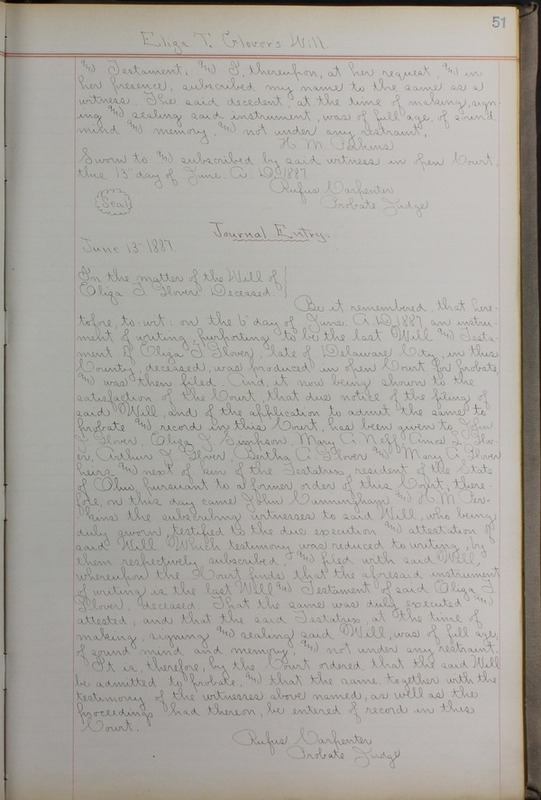 51
Eliza T. Glover's Will.
and Testament. and I, thereupon, at her request, and in
her presence, subscribed my name to the same as a
witness. The said decedent, at the time of making, sign-
ing and sealing said instrument, was of full age, of sound
mind and memory, and not under any restraint.
H. M. Perkins
Sworn to and subscribed by said witness in open Court,
this 13 day of June. A. D. 1887
Rufus Carpenter
Probate Judge
Seal
Journal Entry.
June 13 1887.
In the matter of the Will of
Eliza T. Glover Deceased.
Be it remembered, that here-
tofore, to-wit: on the 6 day of June. A. D. 1887 an instru-
ment of writing, purporting to be the last Will and Testa-
ment of Eliza T. Glover, late of Delaware City, in this
County, deceased, was produced in open Court for probate
and was then filed. And, it now being shown to the
satisfaction of the Court, that due notice of the filing of
said Will, and of the application to admit the same to
probate and record in this Court, has been given to John
T. Glover, Eliza J. Simpson, Mary C. Neff, Glov-
er, Arthur Glover, Bertha Glover and Mary Glover
being next of kin of the Testatrix, resident of the State
of Ohio, pursuant to a former order of this Court, there-
fore, on this day came John Cunningham and H. M. Per-
kins the subscribing witnesses to said Will, who being
duly sworn, testified to the due execution and attestation of
said Will. Which testimony was reduced to writing, by
them respectively subscribed and filed with said Will,
whereupon the Court finds that the aforesaid instrument
of writing is the last Will and Testament of said Eliza T.
Glover, deceased. That the same was duly executed and
attested, and that the said Testatrix, at the time of
making, signing and sealing said Will, was of full age,
of sound mind and memory, and not under any restraint.
It is, therefore, by the Court ordered that the said Will
be admitted to probate, and that the same, together with the
testimony of the witnesses above named, as well as the
proceedings had thereon, be entered of record in this
Court.
Rufus Carpenter
Probate Judge